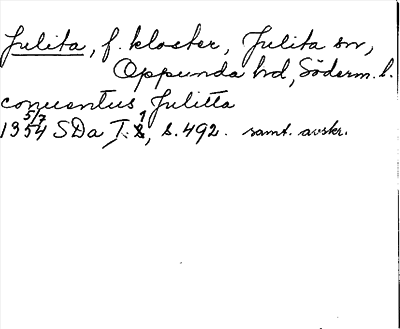 Julita, f. kloster, Julita sn,
Oppunda hd, Söderm. l.
conuentus Julitta
1354 5/7 SDa I: 1, s. 492. samt. avskr.